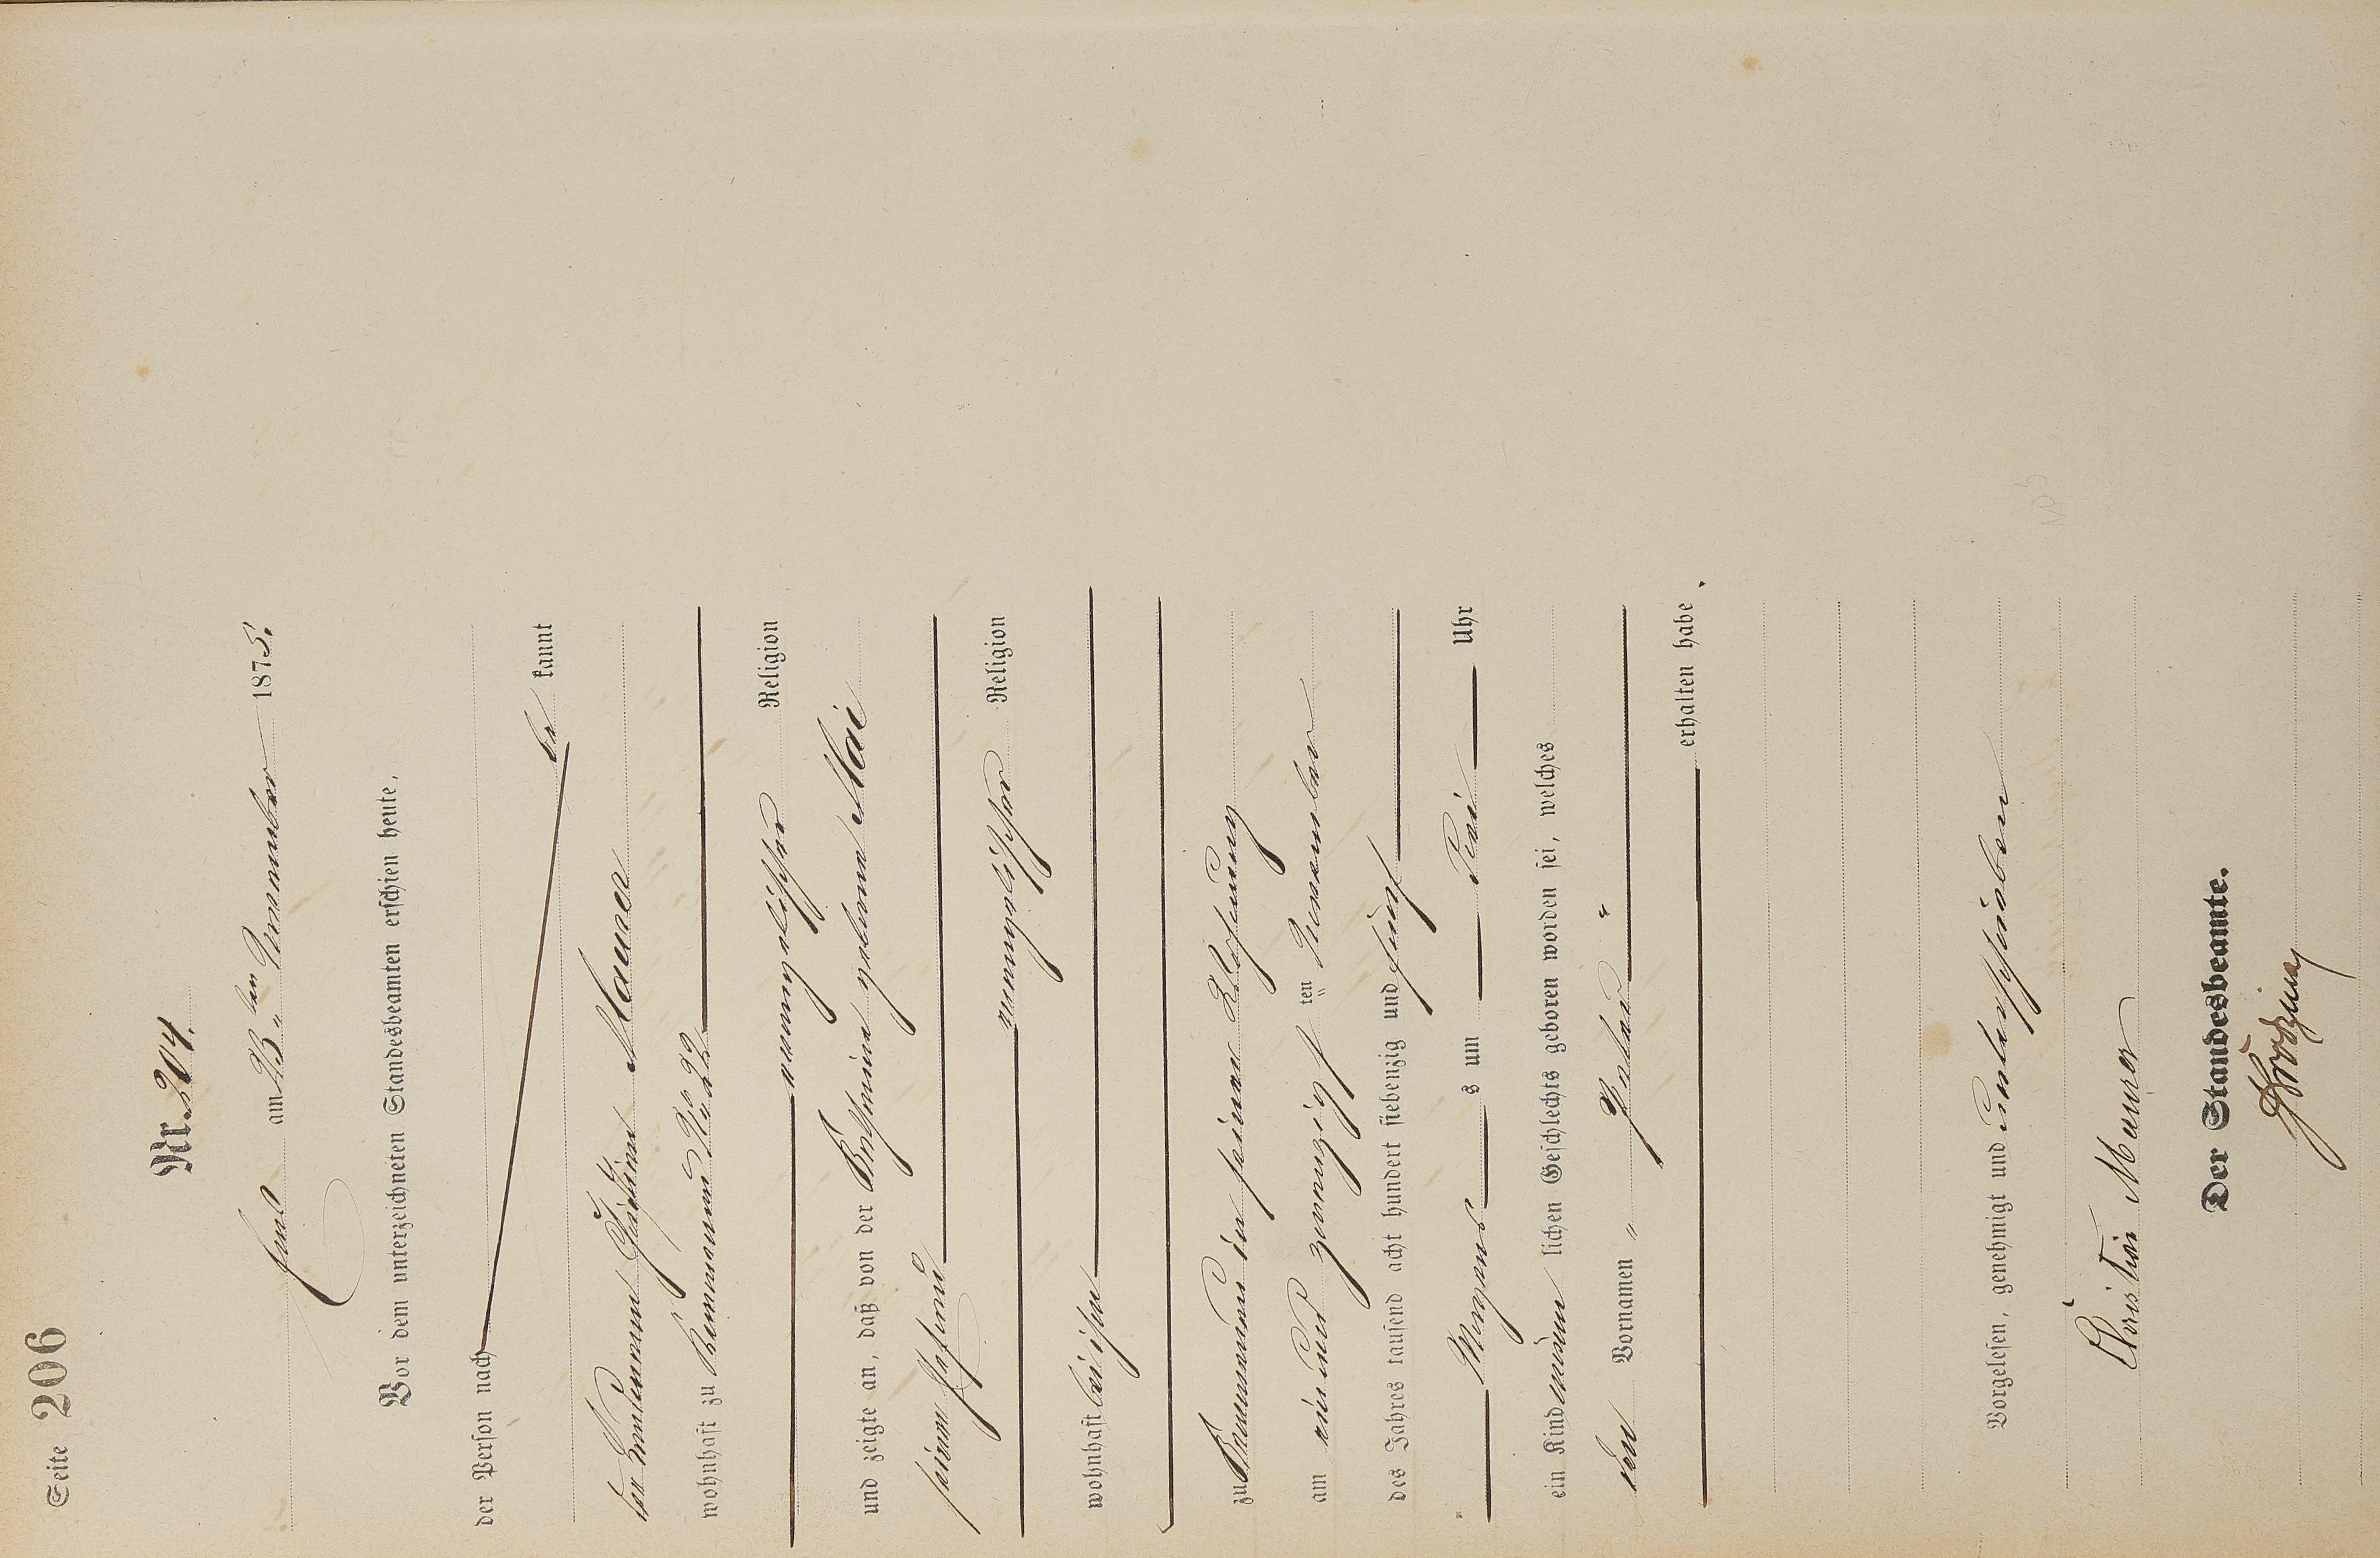 Seite 206
Nr. 204.
am 23ten November 1875.
Vor dem unterzeichneten Standesbeamten erschien heute,
der Person nach
be kannt
der Landmann Christian Maurer
wohnhaft zu No 22
evangelischer Religion
und zeigte an, daß von der geborene Mai
seiner Ehefrau
evangelischer Religion
wohnhaft bei ihm
zu in seiner Wohnung
am ein und zwanzigsten November
des Jahres tausend acht hundert siebenzig und fünf
Morgens um drei Uhr
ein Kind männ lichen Geschlechts geboren worden sei, welches
den Vornamen „ Peter “
erhalten habe.
Vorgelesen, genehmigt und unterschrieben
Christian Maurer
Der Standesbeamte.